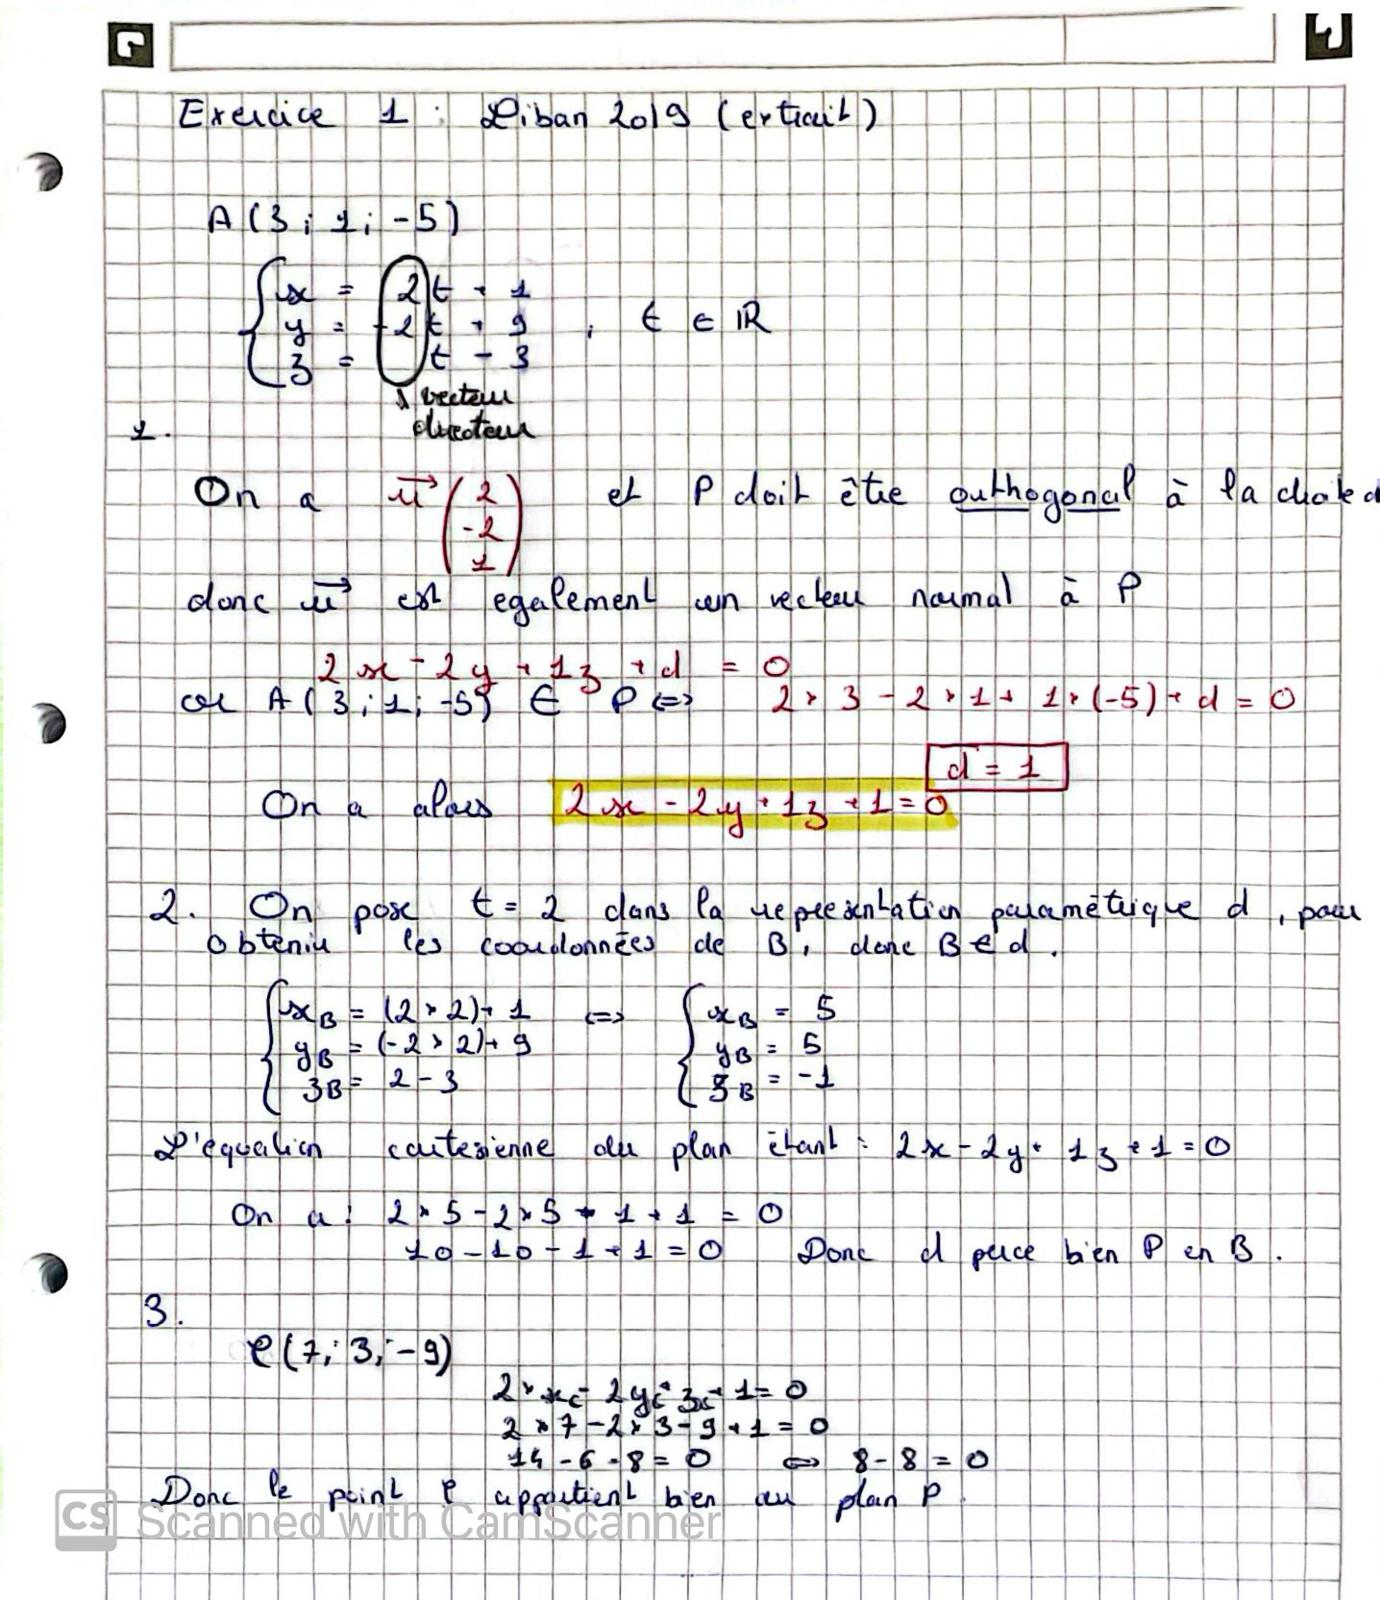 Exercice 1 : Liban 2019 (extrait)
A (3 ; 1 ; -5)
x = 2t + 1
y = -2t + 9 , t ∈ ℝ
z = t - 3
vecteur
directeur
1.
On a u⃗ (2 et P doit être orthogonal à la droite d
-2
1)
donc u⃗ est egalement un vecteur normal à P
2x - 2y + 1z + d = 0
or A (3 ; 1 ; -5) ∈ P ⇔ 2 × 3 - 2 × 1 + 1 × (-5) + d = 0
d = 1
On a alors 2x - 2y + 1z + 1 = 0
2. On pose t = 2 dans la représentation paramétrique d , pour
obtenir les coordonnées de B, donc B ∈ d .
xB = (2 × 2) + 1 ⇔ xB = 5
yB = (-2 × 2) + 9 yB = 5
zB = 2 - 3 zB = -1
L'équation cartésienne du plan étant : 2x - 2y + 1z + 1 = 0
On a : 2 × 5 - 2 × 5 - 1 + 1 = 0
10 - 10 - 1 + 1 = 0 Donc d perce bien P en B .
3.
C (7 ; 3 ; -9)
2 × xc - 2yc + zc + 1 = 0
2 × 7 - 2 × 3 - 9 + 1 = 0
14 - 6 - 8 = 0 ⇔ 8 - 8 = 0
Donc le point C appartient bien au plan P
CS Scanned with CamScanner